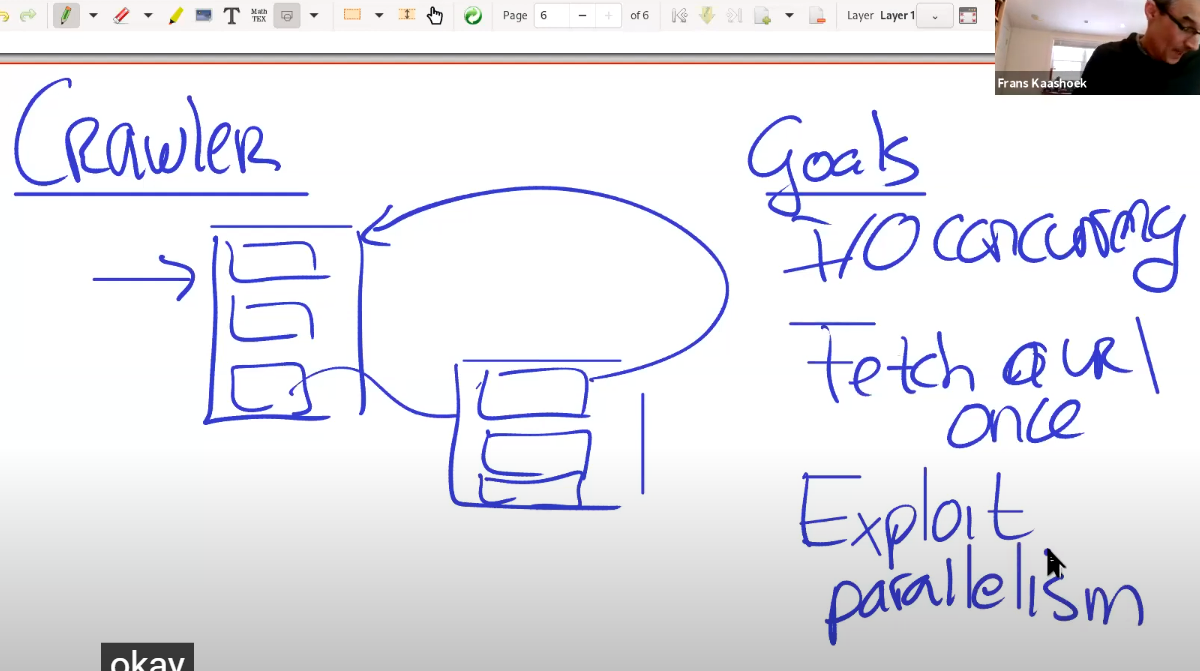 MATH
TEX
T
Page 6 of 6
Layer Layer 1
Frans Kaashoek
CRAWLER
Goals
I/O concurrency
Fetch a URl
once
Exploit
parallelism
okay